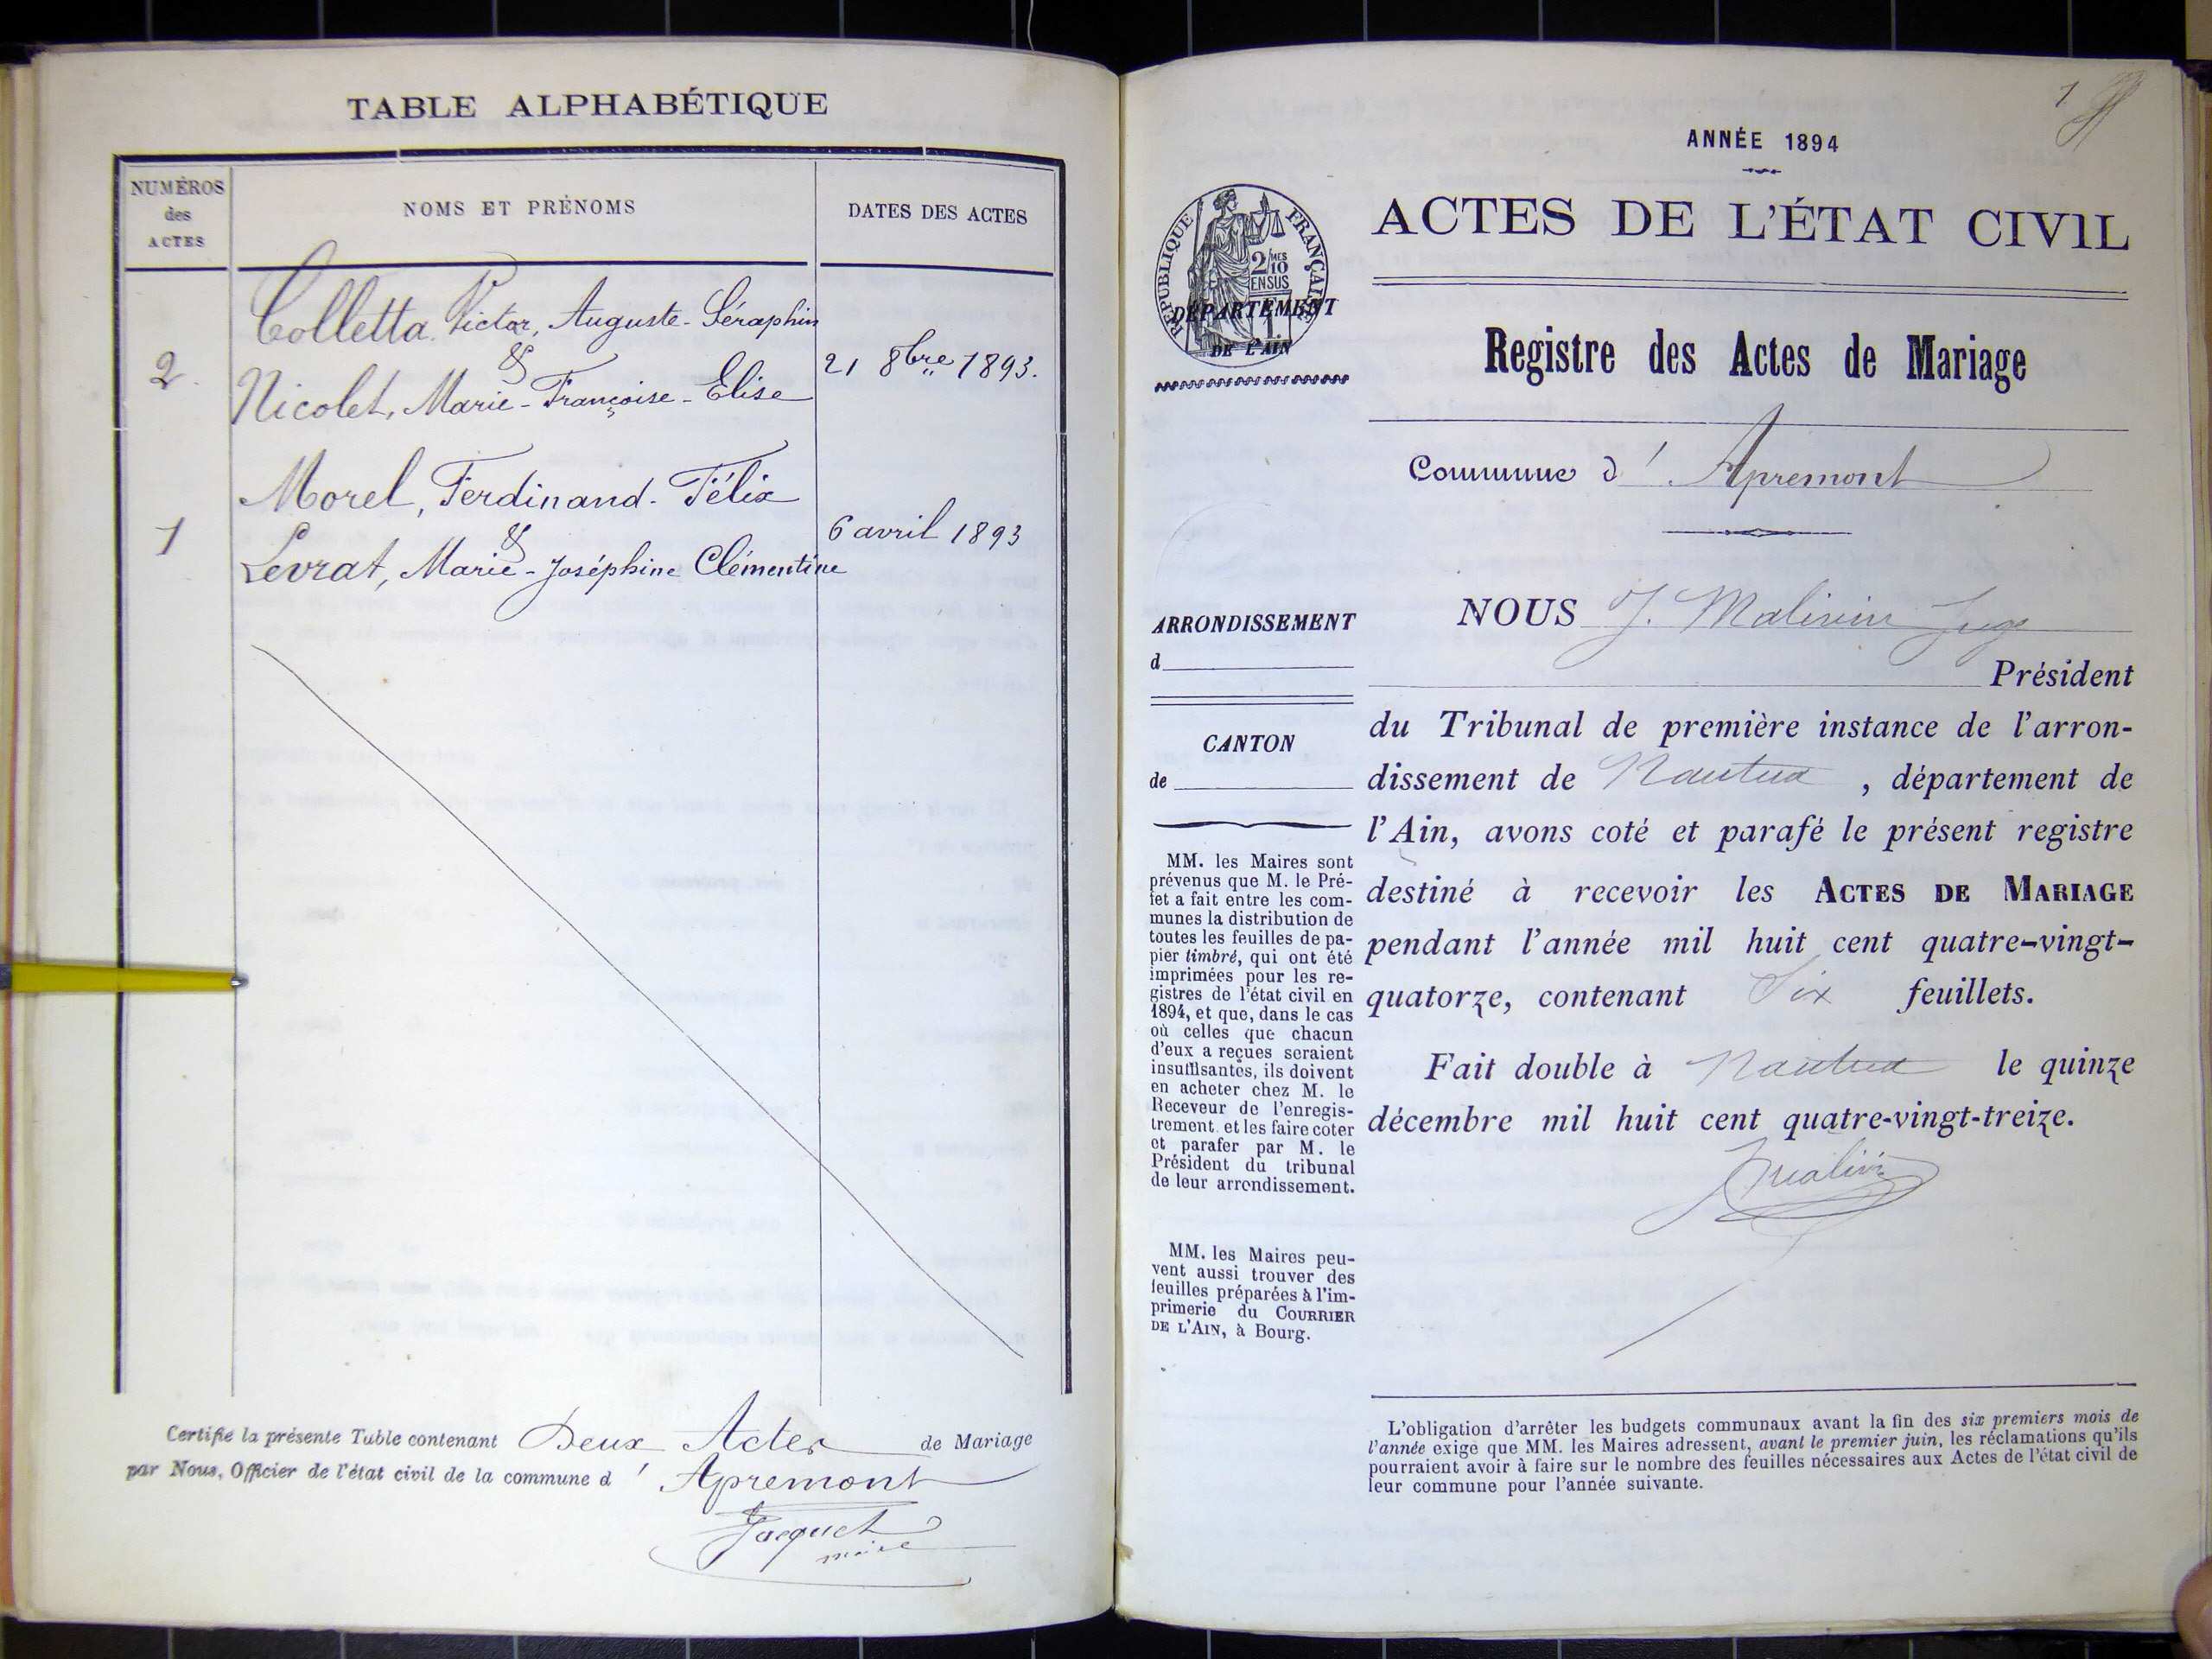 TABLE ALPHABÉTIQUE
NUMÉROS
des
ACTES
NOMS ET PRÉNOMS
DATES DES ACTES
Colletta Victor, Auguste-Séraphin
2. & 21 8bre 1893.
Nicolet, Marie-Françoise-Elise
Morel, Ferdinand-Félix
1 & 6 avril 1893
Levrat, Marie-Joséphine Clémentine
Certifie la présente Table contenant Deux Actes de Mariage
par Nous, Officier de l'état civil de la commune d' Apremont
Jacquet
maire
1
ANNÉE 1894
RÉPUBLIQUE FRANÇAISE
2/10
MES
EN SUS
DÉPARTEMENT
DE L'AIN
ACTES DE L'ÉTAT CIVIL
Registre des Actes de Mariage
Commune d' Apremont
ARRONDISSEMENT
d
CANTON
de
MM. les Maires sont
prévenus que M. le Pré-
fet a fait entre les com-
munes la distribution de
toutes les feuilles de pa-
pier timbré, qui ont été
imprimées pour les re-
gistres de l'état civil en
1894, et que, dans le cas
où celles que chacun
d'eux a reçues seraient
insuffisantes, ils doivent
en acheter chez M. le
Receveur de l'enregis-
trement et les faire coter
et parafer par M. le
Président du tribunal
de leur arrondissement.
MM. les Maires peu-
vent aussi trouver des
feuilles préparées à l'im-
primerie du COURRIER
DE L'AIN, à Bourg.
NOUS J. Malivin Juge
Président
du Tribunal de première instance de l'arron-
dissement de Nantua, département de
l'Ain, avons coté et parafé le présent registre
destiné à recevoir les ACTES DE MARIAGE
pendant l'année mil huit cent quatre-vingt-
quatorze, contenant Six feuillets.
Fait double à Nantua le quinze
décembre mil huit cent quatre-vingt-treize.
L'obligation d'arrêter les budgets communaux avant la fin des six premiers mois de
l'année exige que MM. les Maires adressent, avant le premier juin, les réclamations qu'ils
pourraient avoir à faire sur le nombre des feuilles nécessaires aux Actes de l'état civil de
leur commune pour l'année suivante.